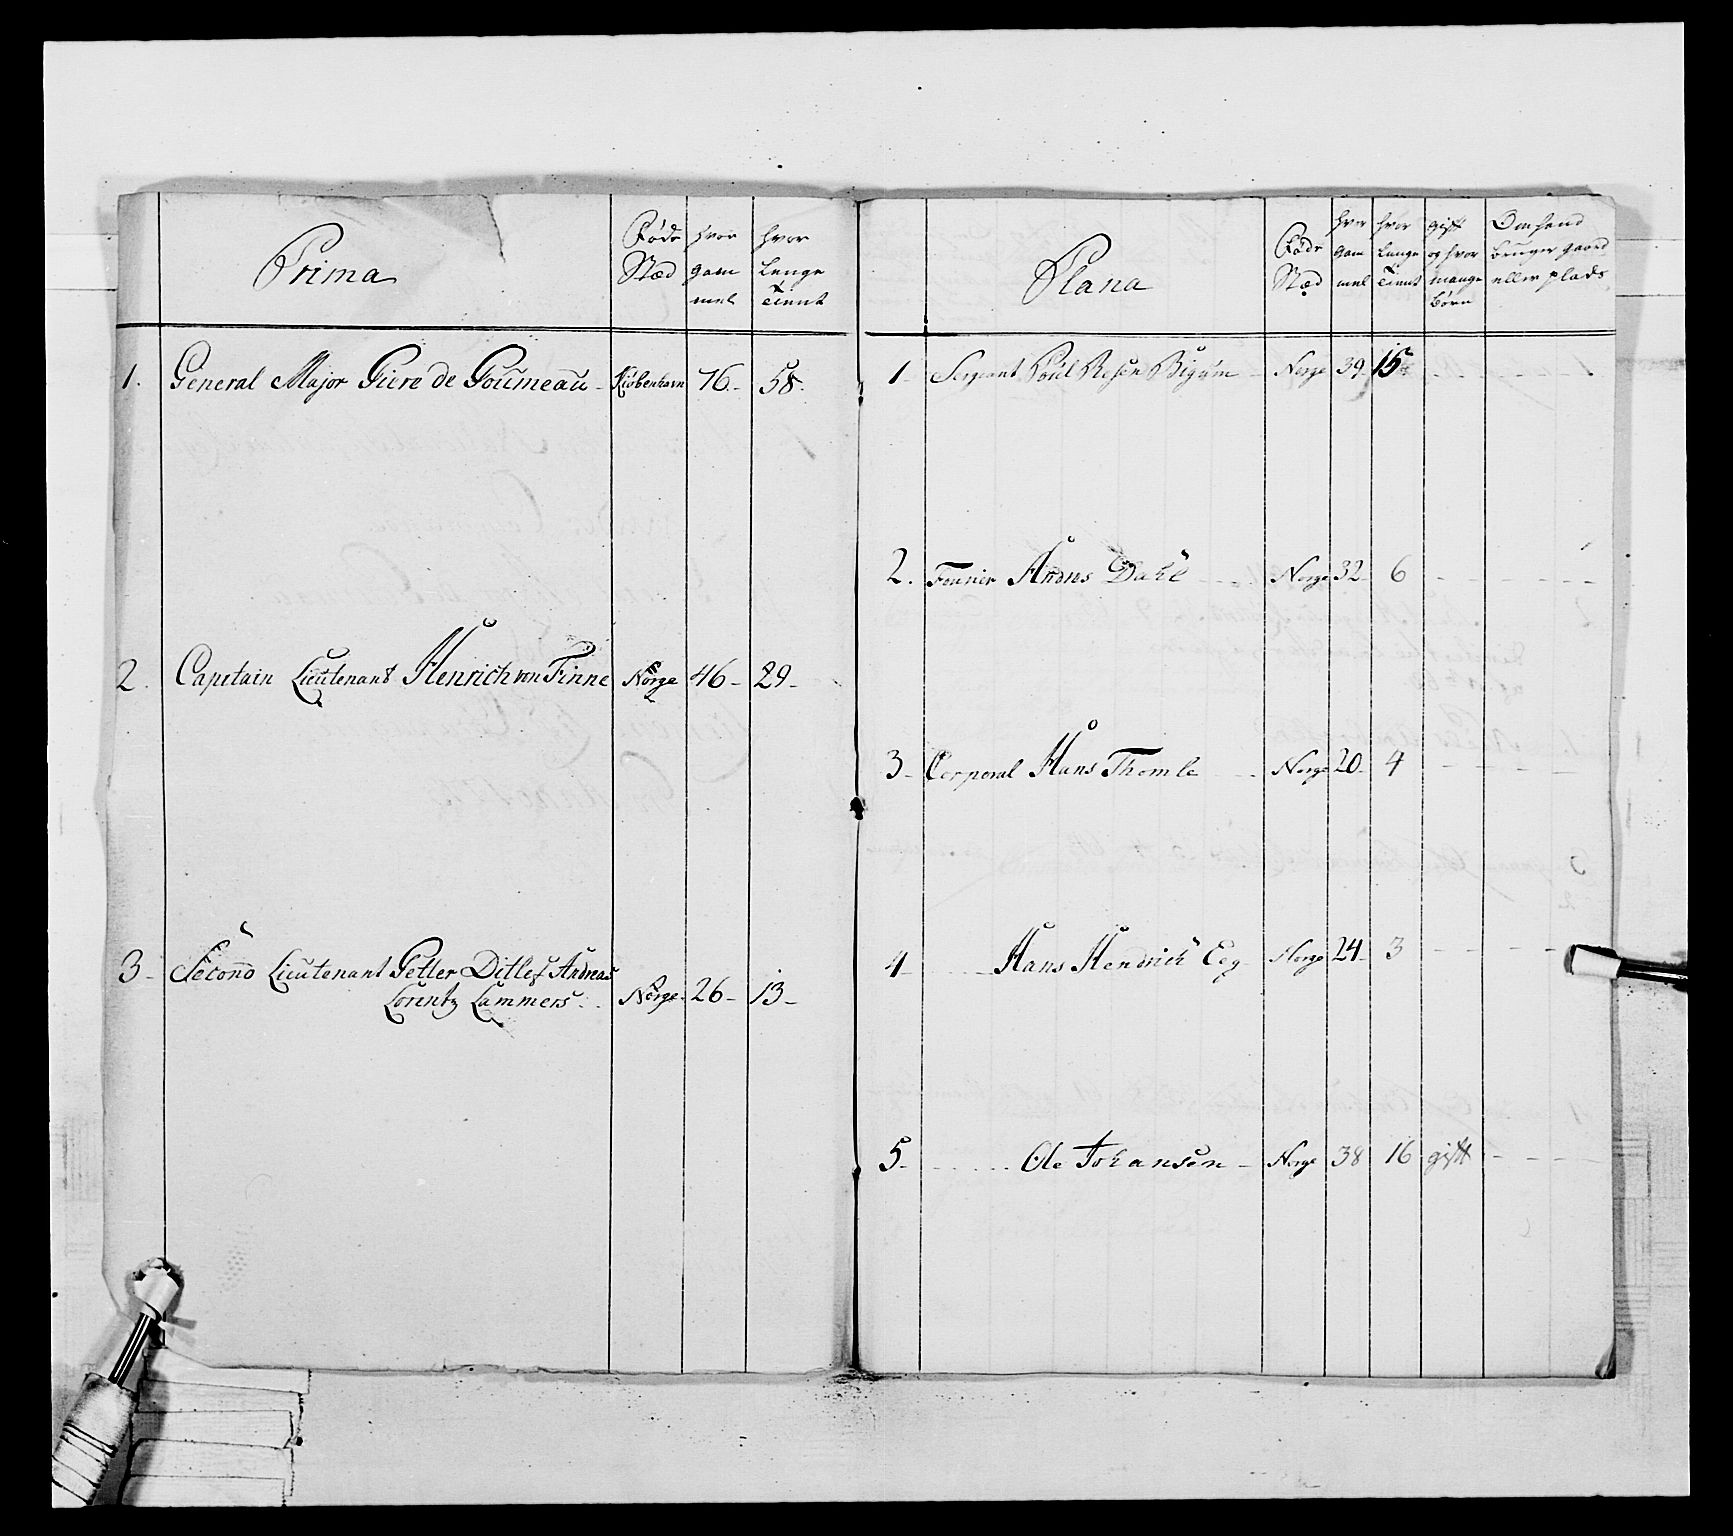 Prima
Føde Stæd
hvor gam mel
hvor lenge Tient
1. General Major Giere de Goumeau - Kiöbenhavn 76 - 58.
2. Capitain Lieutenant Henrich von Finne Norge 46 - 29 -
3 - Second Lieutenant Petter Ditlef Andreas
Lorentz Lammers - Norge - 26 - 13 -
Plana
Føde Stæd
hvor gam mel
hvor lenge Tient
gift og hvor mange Børn
Om hand bruger gaard eller plads
1 - Sergeant Poul Resen Bigum - Norge 39. 15
2. Fourier Andres Dahl - - - Norge 32 - 6 - - - - -
3 - Corporal Hans Thomle - - Norge 20 - 4 - - - -
4 - - Hans Hendrich Eeg - Norge 24 - 3 - - - -
5 - - - - - Ole Johansen - Norge 38 16 gift - - - -